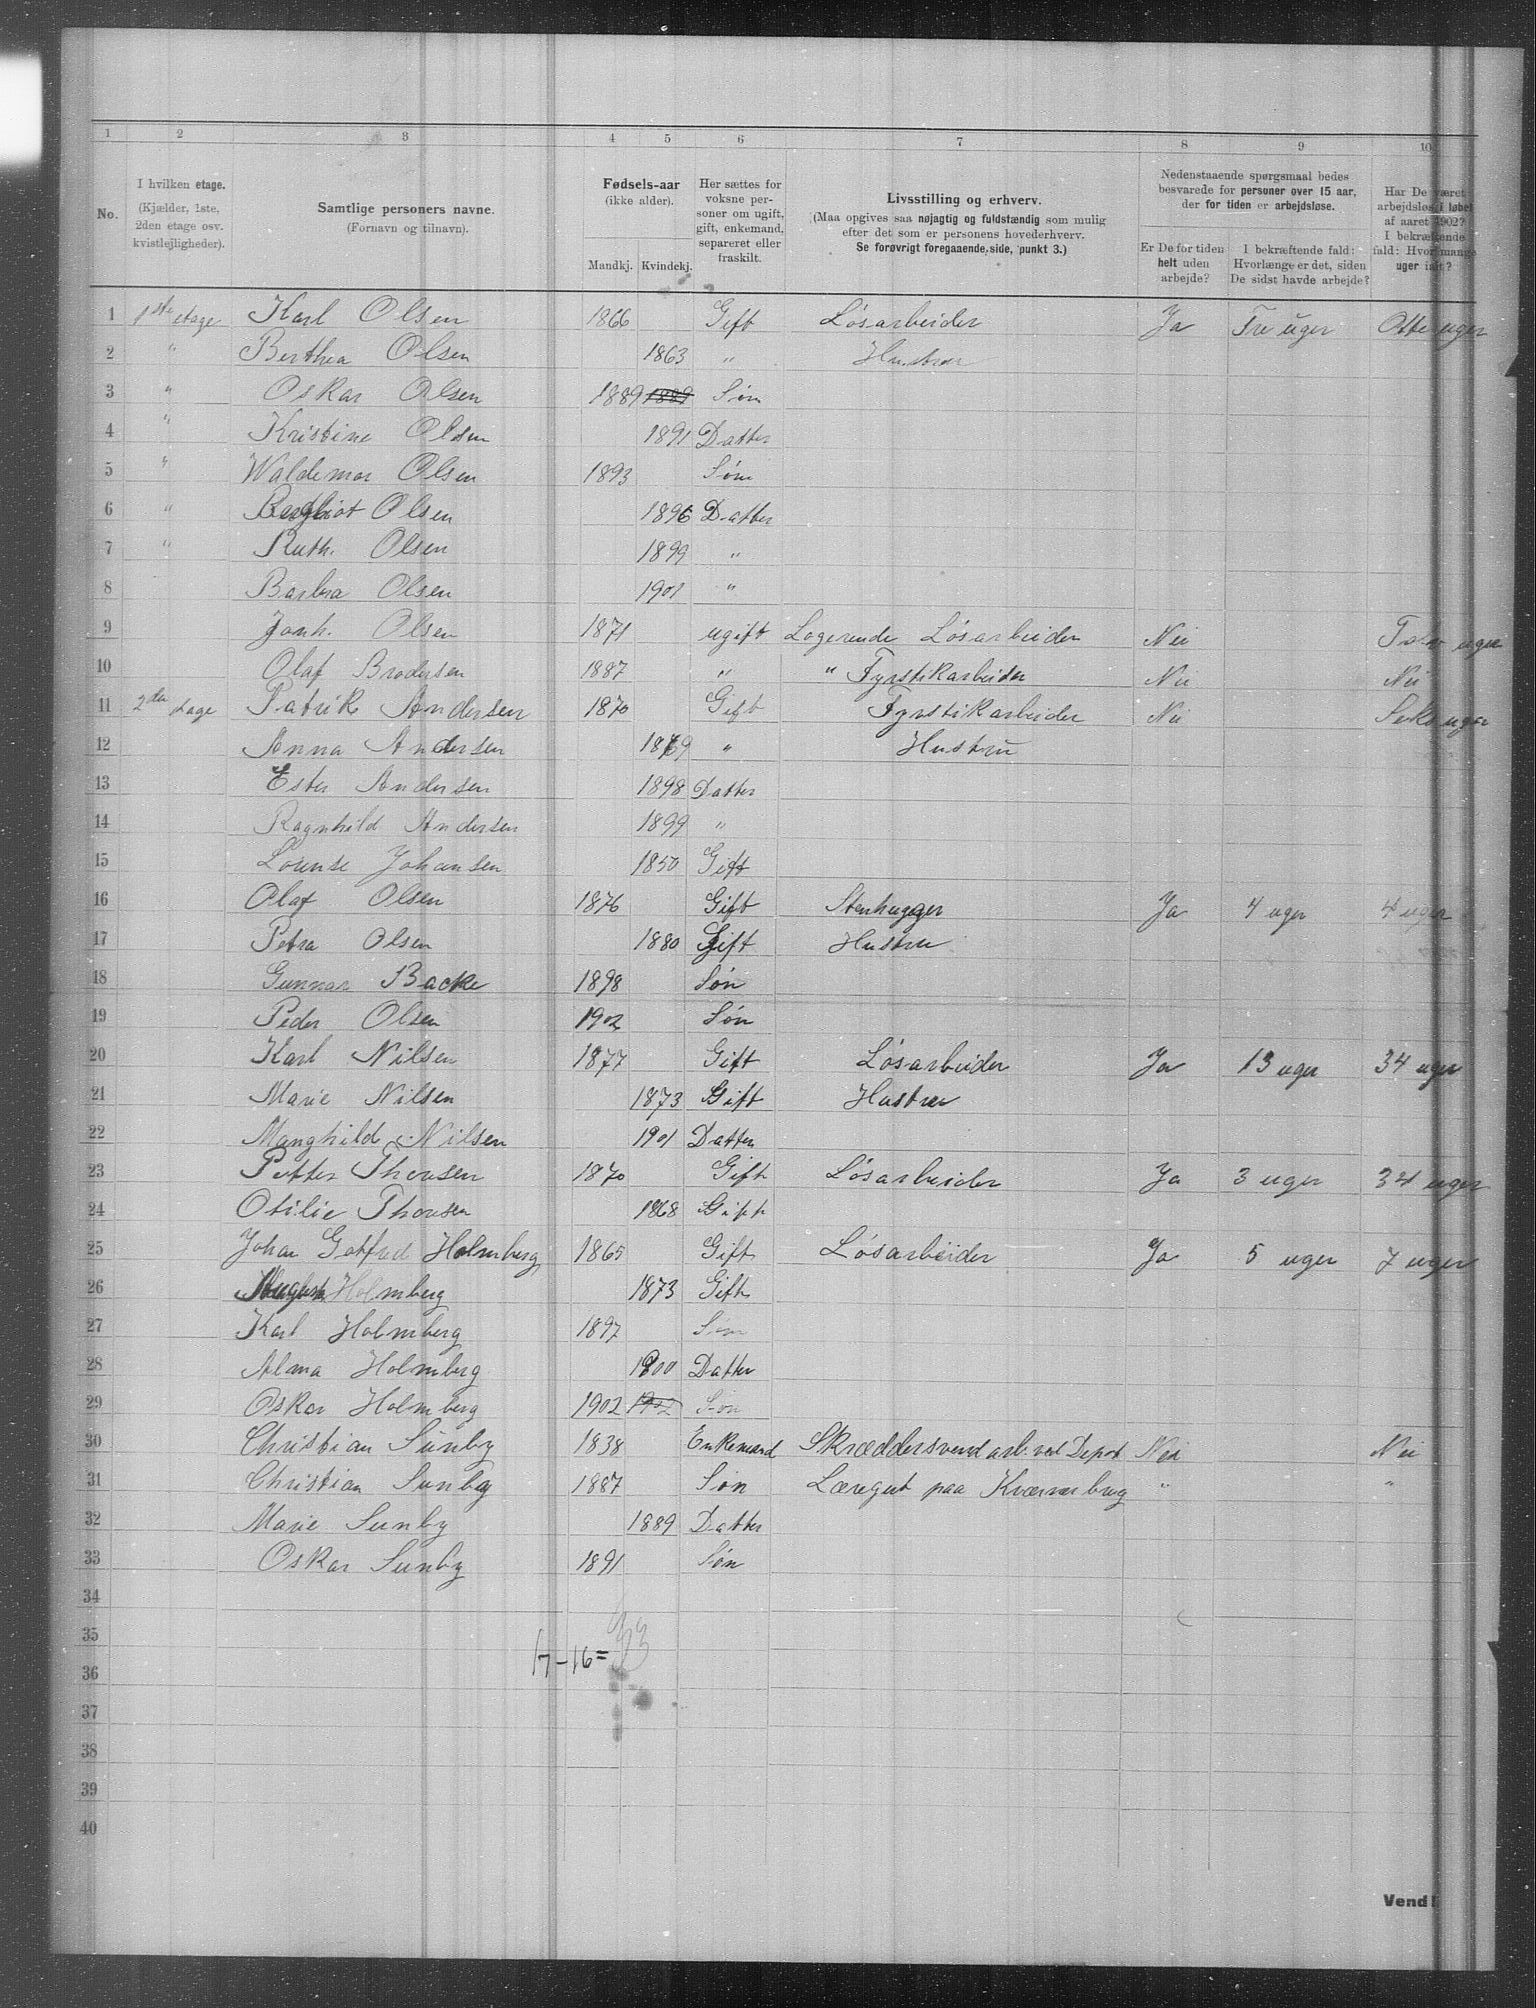 1 2 3 4 5 6 7 8 9 10
No.
I hvilken etage.
(Kjælder, 1ste,
2den etage osv.
kvistlejligheder).
Samtlige personers navne.
(Fornavn og tilnavn).
Fødsels-aar
(ikke alder).
Mandkj. Kvindekj.
Her sættes for
voksne per-
soner om ugift,
gift, enkemand,
separeret eller
fraskilt.
Livsstilling og erhverv.
(Maa opgives saa nøjagtig og fuldstændig som mulig
efter det som er personens hovederhverv.
Se forøvrigt foregaaende side, punkt 3.)
Nedenstaaende spørgsmaal bedes
besvarede for personer over 15 aar,
der for tiden er arbejdsløse.
Er De for tiden
helt uden
arbejde?
I bekræftende fald:
Hvorlænge er det, siden
De sidst havde arbejde?
Har De været
arbejdsløs i løbet
af aaret 1902?
I bekræftende
fald: Hvor mange
uger ialt?
1 1ste etage Karl Olsen 1866 Gift Løsarbeider Ja Tre uger Otte uger
2 " Berthea Olsen 1863 " Hustru
3 " Oskar Olsen 1889 1889 Søn
4 " Kristine Olsen 1891 Datter
5 " Waldemar Olsen 1893 Søn
6 " Bergliot Olsen 1896 Datter
7 " Ruth. Olsen 1899 "
8 Barbra Olsen 1901 "
9 Jonh. Olsen 1871 ugift Logerende Løsarbeider Nei Tolv uger
10 Olaf Brodersen 1887 " " Fyrstikarbeider Nei Nei
11 2den Etage Patrik Andersen 1870 Gift Fyrstikarbeider Nei Seks uger
12 Anna Andersen 1869 " Hustru
13 Ester Andersen 1898 Datter
14 Ragnhild Andersen 1899 "
15 Lovense Johansen 1850 Gift
16 Olaf Olsen 1876 Gift Stenhugger Ja 4 uger 4 uger
17 Petra Olsen 1880 Gift Hustru
18 Gunnar Backe 1898 Søn
19 Peder Olsen 1902 Søn
20 Karl Nilsen 1877 Gift Løsarbeider Ja 13 uger 34 uger
21 Marie Nilsen 1873 Gift Hustru
22 Manghild Nilsen 1901 Datter
23 Petter Thoresen 1870 Gift Løsarbeider Ja 3 uger 34 uger
24 Otilie Thoresen 1868 Gift
25 Johan Gotfred Holmberg 1865 Gift Løsarbeider Ja 5 uger 7 uger
26 Holmberg 1873 Gift
27 Karl Holmberg 1897 Søn
28 Alma Holmberg 1900 Datter
29 Oskar Holmberg 1902 1902 Søn
30 Christian Sunby 1838 Enkemand Skræddersvend arb. ved Depot Nei Nei
31 Christian Sunby 1887 Søn Læregut paa Kværnerbrug " "
32 Marie Sunby 1889 Datter
33 Oskar Sunby 1891 Søn
34
35
17-16=33
36
37
38
39
40
Vend!